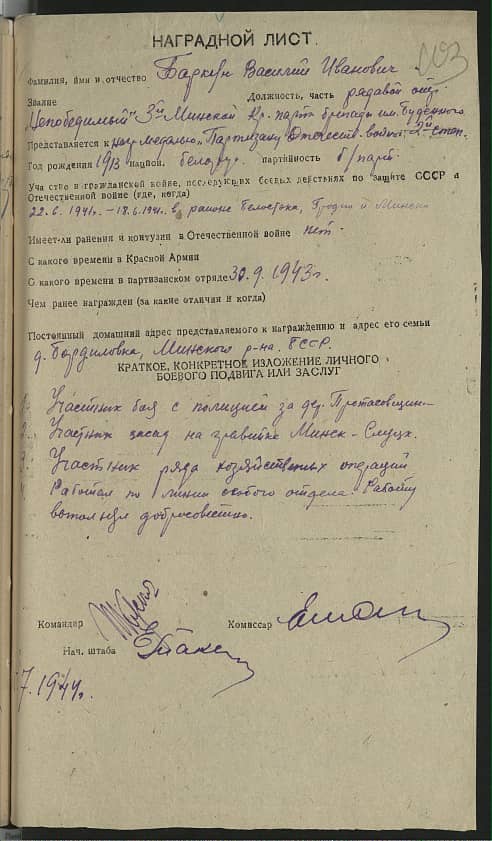 НАГРАДНОЙ ЛИСТ.
Фамилия, имя и отчество Баркун Василий Иванович
Звание Должность, часть рядовой отр.
"Непобедимый" 3й Минской бригады им. Буденного
Представляется к нагр. медалью "Партизану Отечеств. войны" 2й степ.
Год рождения 1913 национ. белорус. партийность б/парт.
Участие в гражданской войне, последующих боевых действиях по защите СССР и
Отечественной войне (где, когда)
22.6.1941г. - 18.6.1941г. в районе Белостока, Гродно и Минска
Имеет-ли ранения и контузии в Отечественной войне нет.
С какого времени в Красной Армии
С какого времени в партизанском отряде 30.9.1943г.
Чем ранее награжден (за какие отличия и когда)
Постоянный домашний адрес представляемого к награждению и адрес его семьи
д. Бардиловка, Минского р-на, БССР.
КРАТКОЕ, КОНКРЕТНОЕ ИЗЛОЖЕНИЕ ЛИЧНОГО
БОЕВОГО ПОДВИГА ИЛИ ЗАСЛУГ
Участник боя с полицией за дер.
Участник засад на гравийке Минск - Слуцк.
Участник ряда хозяйственных операций
Работал по линии особого отдела. Работу
выполнял добросовестно.
Командир Комиссар
Нач. штаба
7.1944г.